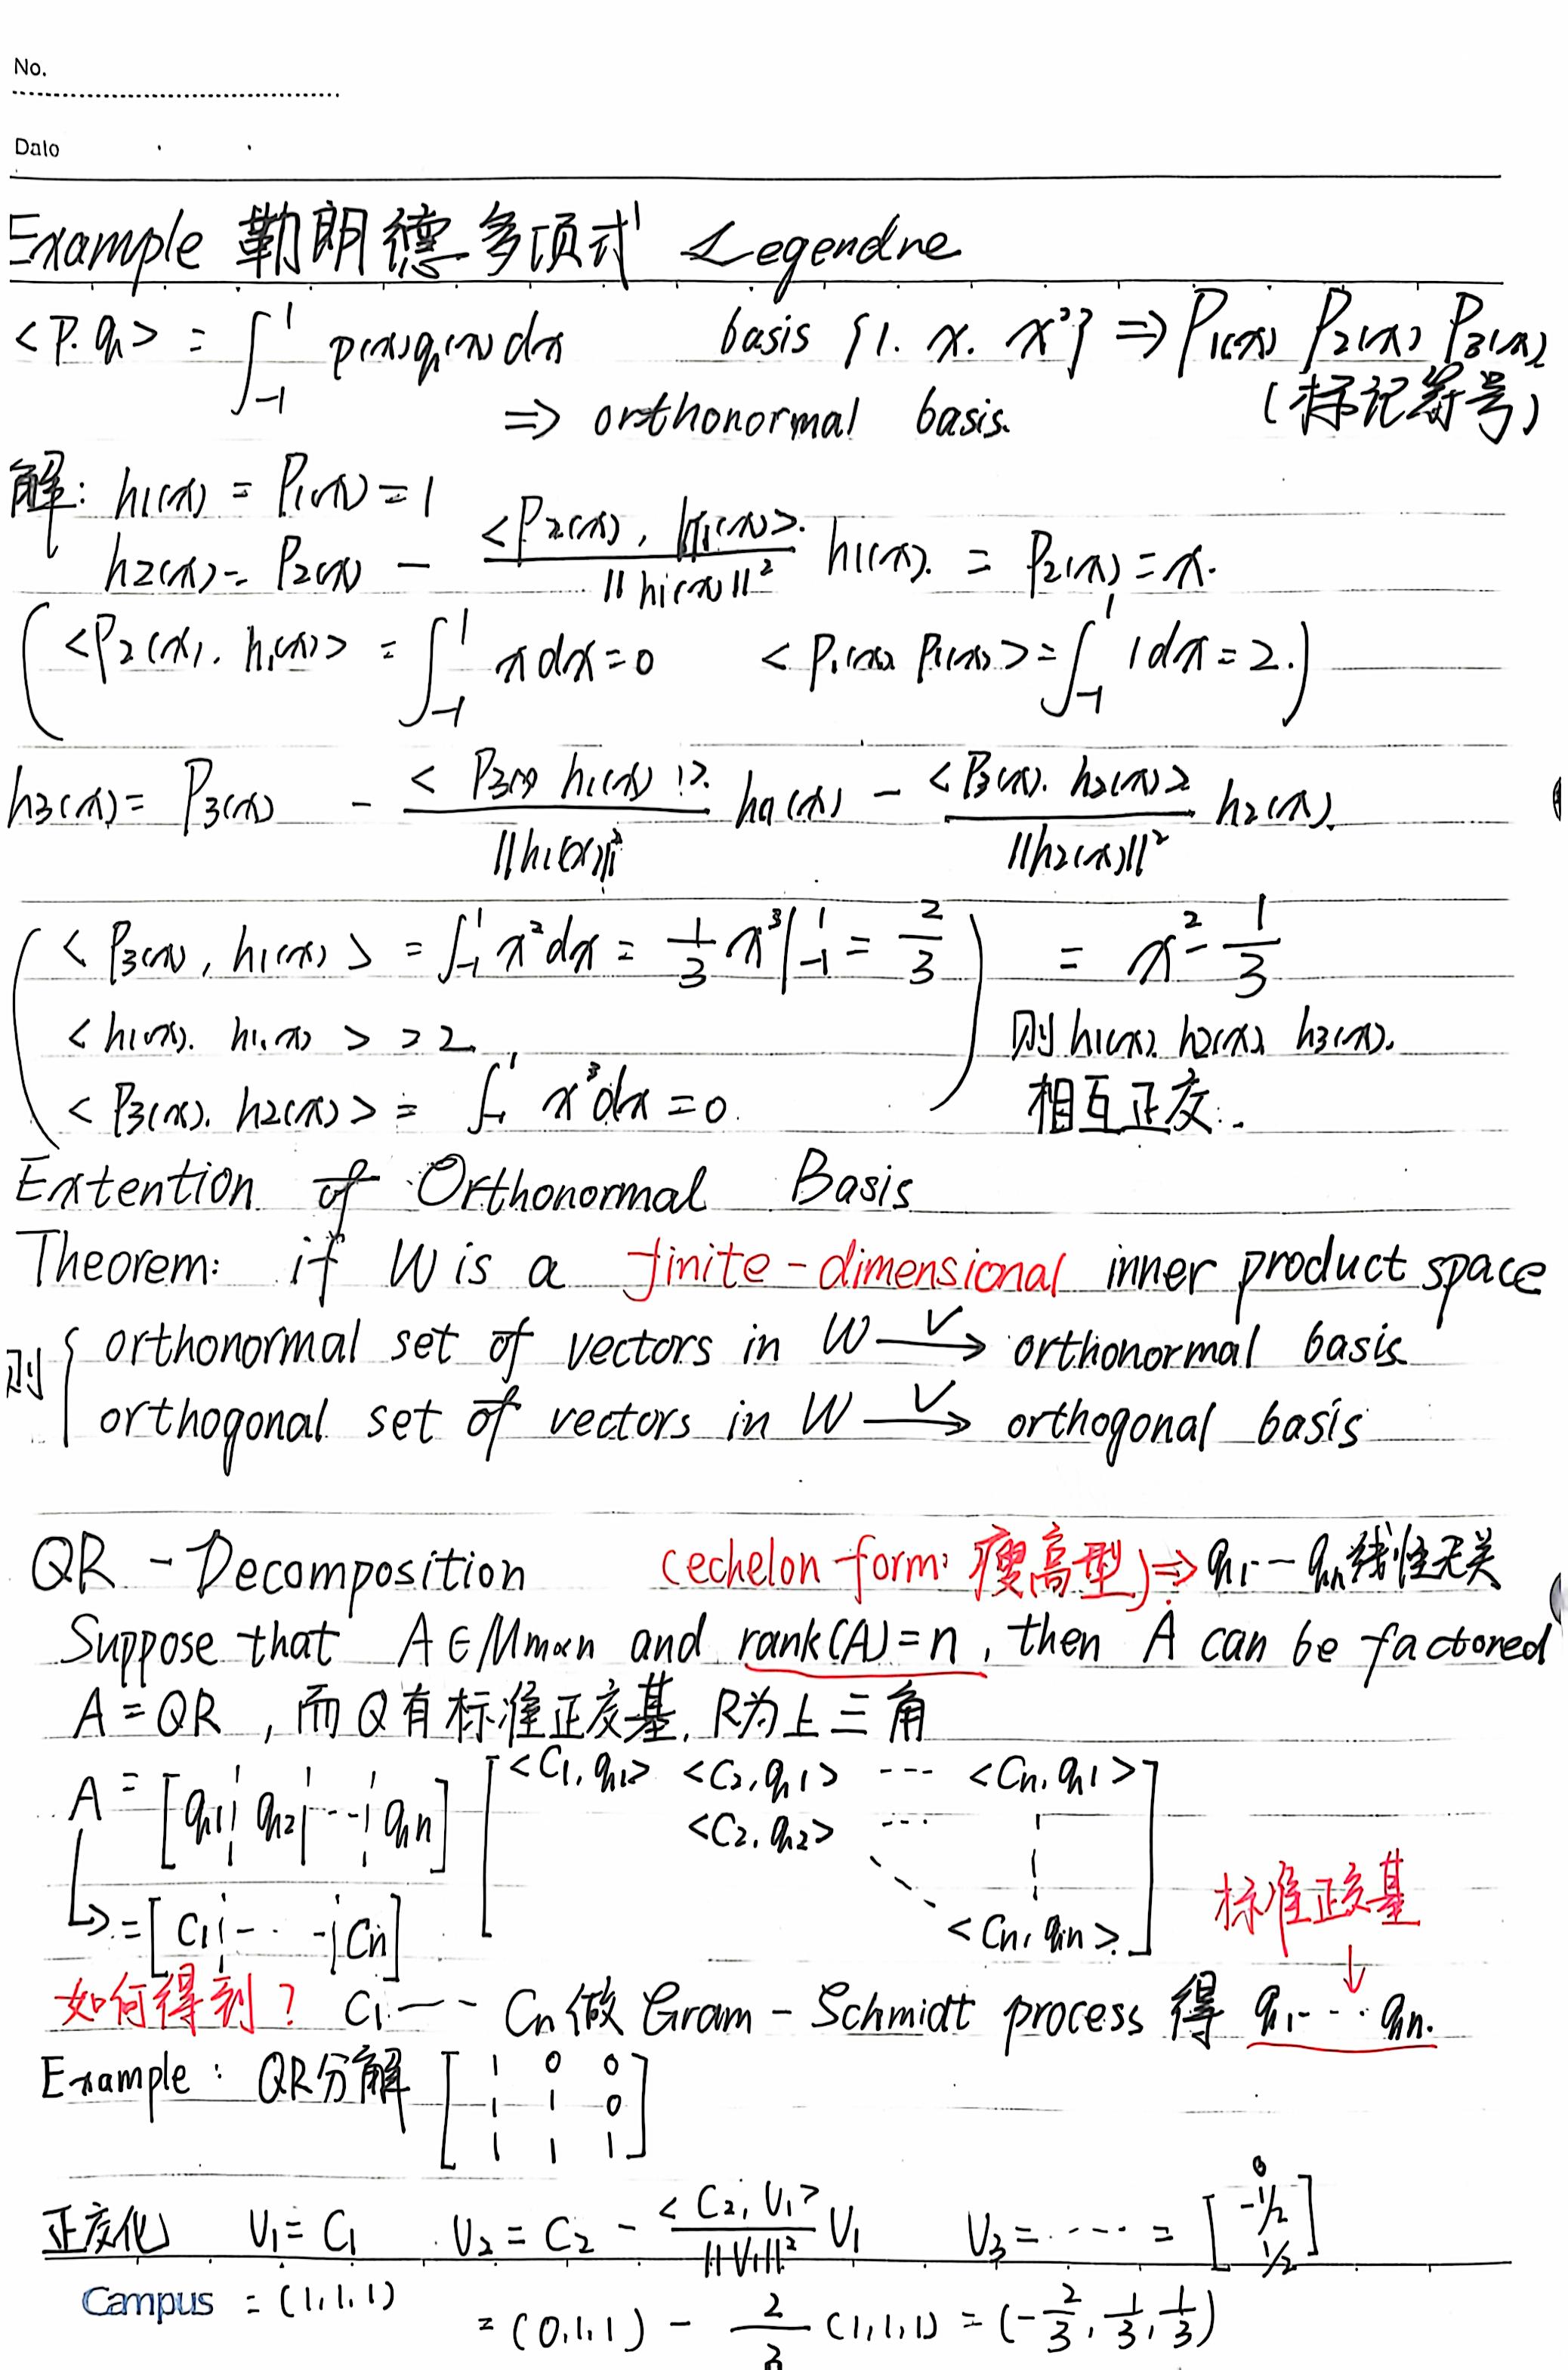 No.
Date
Example 勒朗德多项式 Legendre
<P.q> = ∫₋₁¹ p(x)q(x)dx   basis {1. x. x²} ⇒ P₁(x) P₂(x) P₃(x)
⇒ orthonormal basis. (标记符号)
解: h₁(x) = P₁(x) = 1
h₂(x) = P₂(x) − <P₂(x), h₁(x)>/||h₁(x)||² h₁(x). = P₂(x) = x.
( <P₂(x), h₁(x)> = ∫₋₁¹ x dx = 0   <P₁(x) P₁(x)> = ∫₋₁¹ 1dx = 2. )
h₃(x) = P₃(x) − <P₃(x) h₁(x)>/||h₁(x)||² h₁(x) − <P₃(x). h₂(x)>/||h₂(x)||² h₂(x).
( <P₃(x), h₁(x)> = ∫₋₁¹ x²dx = 1/3 x³|₋₁¹ = 2/3 ) = x² − 1/3
<h₁(x). h₁(x)> = 2   则 h₁(x). h₂(x), h₃(x).
<P₃(x). h₂(x)> = ∫₋₁¹ x³dx = 0.   相互正交.
Extention of Orthonormal Basis
Theorem: if W is a finite-dimensional inner product space
则 { orthonormal set of vectors in W —V→ orthonormal basis
orthogonal set of vectors in W —V→ orthogonal basis
QR - Decomposition (echelon form: 瘦高型) ⇒ q₁ -- qₙ线性无关
Suppose that A∈Mm×n and rank(A)=n, then A can be factored
A = QR , 而Q有标准正交基, R为上三角
A = [q₁ ¦ q₂ ¦ -- ¦ qₙ] [<C₁,q₁> <C₂,q₁> --- <Cₙ,q₁>
<C₂,q₂> ---
<Cₙ,qₙ>]
标准正交基
↳ = [C₁ ¦ - - - ¦ Cₙ]
↓
如何得到? C₁ -- Cₙ做 Gram-Schmidt process 得 q₁--- qₙ.
Example: QR分解 [ 1 0 0
1 1 0
1 1 1 ]
正交化 V₁ = C₁   V₂ = C₂ − <C₂, V₁>/||V₁||² V₁   V₃ = ---- = [0 -1/2 1/2]
Campus = (1,1,1)
= (0,1,1) − 2/3 (1,1,1) = (−2/3, 1/3, 1/3)